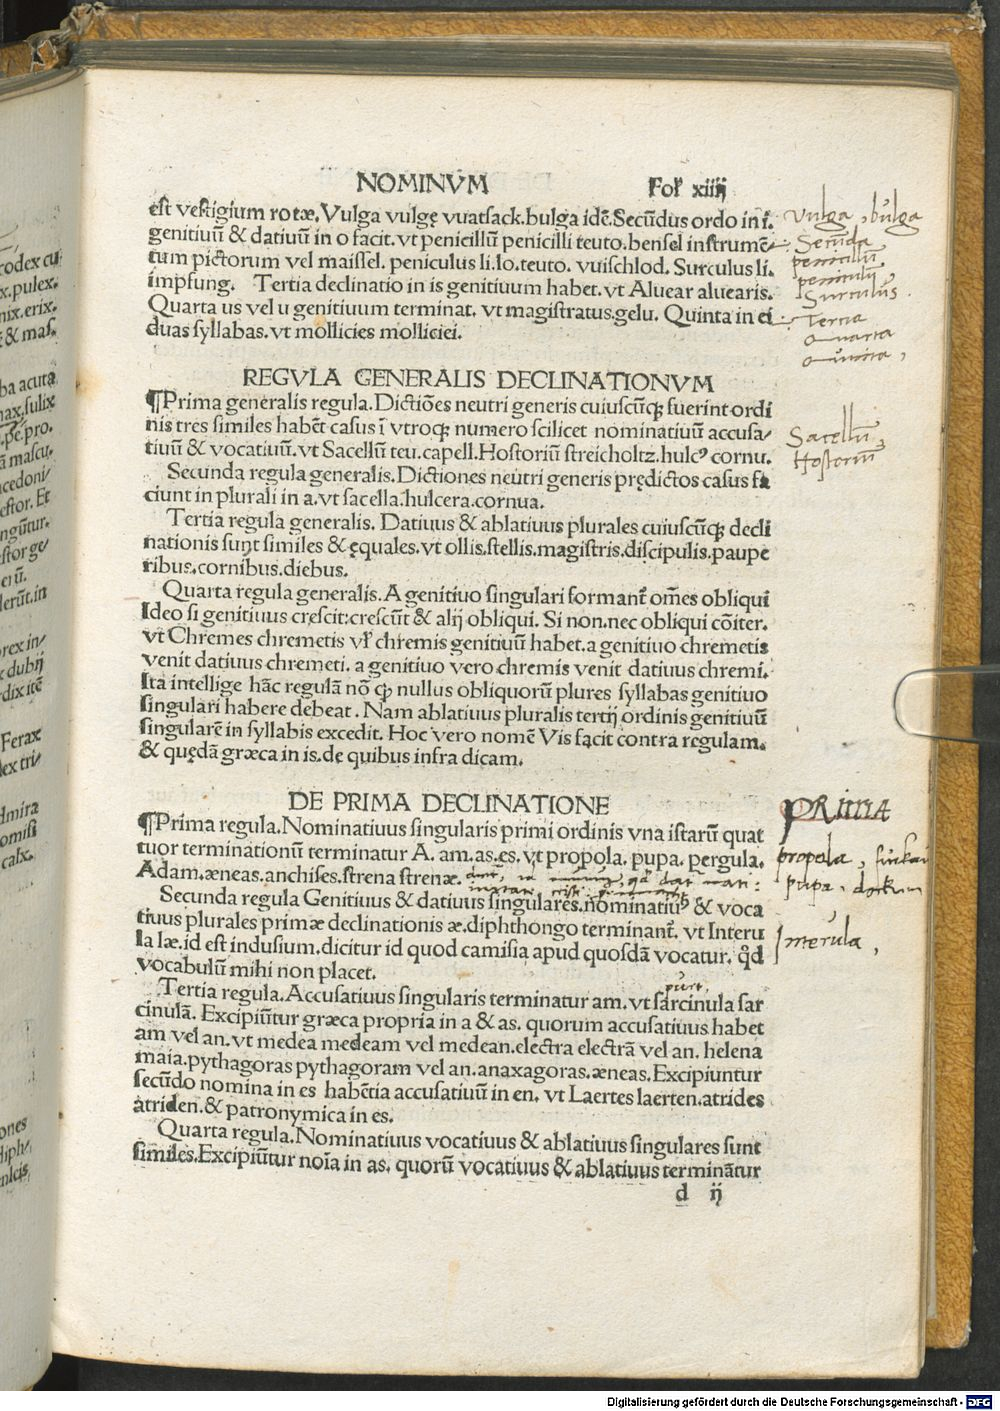 NOMINVM Fol' xiiij
est vestigium rotæ. Vulga vulgę vuatsack. bulga idē. Secūdus ordo in i.
genitiuū & datiuū in o facit. vt penicillū penicilli teuto. bensel instrumē-
tum pictorum vel maissel. peniculus li. lo. teuto. vuischlod. Surculus li.
impfung. Tertia declinatio in is genitiuum habet. vt Aluear aluearis.
Quarta us vel u genitiuum terminat. vt magistratus. gelu. Quinta in ei
duas syllabas. vt mollicies molliciei.
Vulga, bulga
Secūda
penicillū
peniculū
Surculus
Tertia
Quarta
Quinta,
REGVLA GENERALIS DECLINATIONVM
¶Prima generalis regula. Dictiōes neutri generis cuiuscūq; fuerint ordi
nis tres similes habēt casus ī vtroq; numero scilicet nominatiuū accusa-
tiuū & vocatiuū. vt Sacellū teu. capell. Hostoriū streicholtz. hulcꝰ cornu.
Secunda regula generalis. Dictiones neutri generis prędictos casus fa
ciunt in plurali in a. vt sacella. hulcera. cornua.
Tertia regula generalis. Datiuus & ablatiuus plurales cuiuscūq; decli
nationis sunt similes & ęquales. vt ollis. stellis. magistris. discipulis. paupe
ribus. cornibus. diebus.
Quarta regula generalis. A genitiuo singulari formant̄ om̄es obliqui
Ideo si genitiuus crescit: crescūt & alij obliqui. Si non. nec obliqui cōiter.
vt Chremes chremetis vl' chremis genitiuū habet. a genitiuo chremetis
venit datiuus chremeti. a genitiuo vero chremis venit datiuus chremi.
Ita intellige hāc regulā nō q; nullus obliquorū plures syllabas genitiuo
singulari habere debeat. Nam ablatiuus pluralis tertij ordinis genitiuū
singularē in syllabis excedit. Hoc vero nomē Vis facit contra regulam.
& quędā græca in is. de quibus infra dicam.
Sacellū,
Hostoriū
DE PRIMA DECLINATIONE
¶Prima regula. Nominatiuus singularis primi ordinis vna istarū quat
tuor terminationū terminatur A. am. as. es. vt propola. pupa. pergula.
Adam. æneas. anchises. strena strenæ.
Secunda regula Genitiuus & datiuus singulares. nominatiuꝰ & voca
tiuus plurales primæ declinationis æ. diphthongo terminant̄. vt Interu
la læ. id est indusium. dicitur id quod camisia apud quosdā vocatur. qđ
vocabulū mihi non placet.
Tertia regula. Accusatiuus singularis terminatur am. vt sarcinula sar
cinulā. Excipiūtur græca propria in a & as. quorum accusatiuus habet
am vel an. vt medea medeam vel medean. electra electrā vel an. helena
maia. pythagoras pythagoram vel an. anaxagoras. æneas. Excipiuntur
secūdo nomina in es habētia accusatiuū in en. vt Laertes laerten. atrides
atriden. & patronymica in es.
Quarta regula. Nominatiuus vocatiuus & ablatiuus singulares sunt
similes. Excipiūtur noīa in as. quorū vocatiuus & ablatiuus terminātur
d ij
PRIMA
propola,
pupa.
Interula,
Digitalisierung gefördert durch die Deutsche Forschungsgemeinschaft - DFG